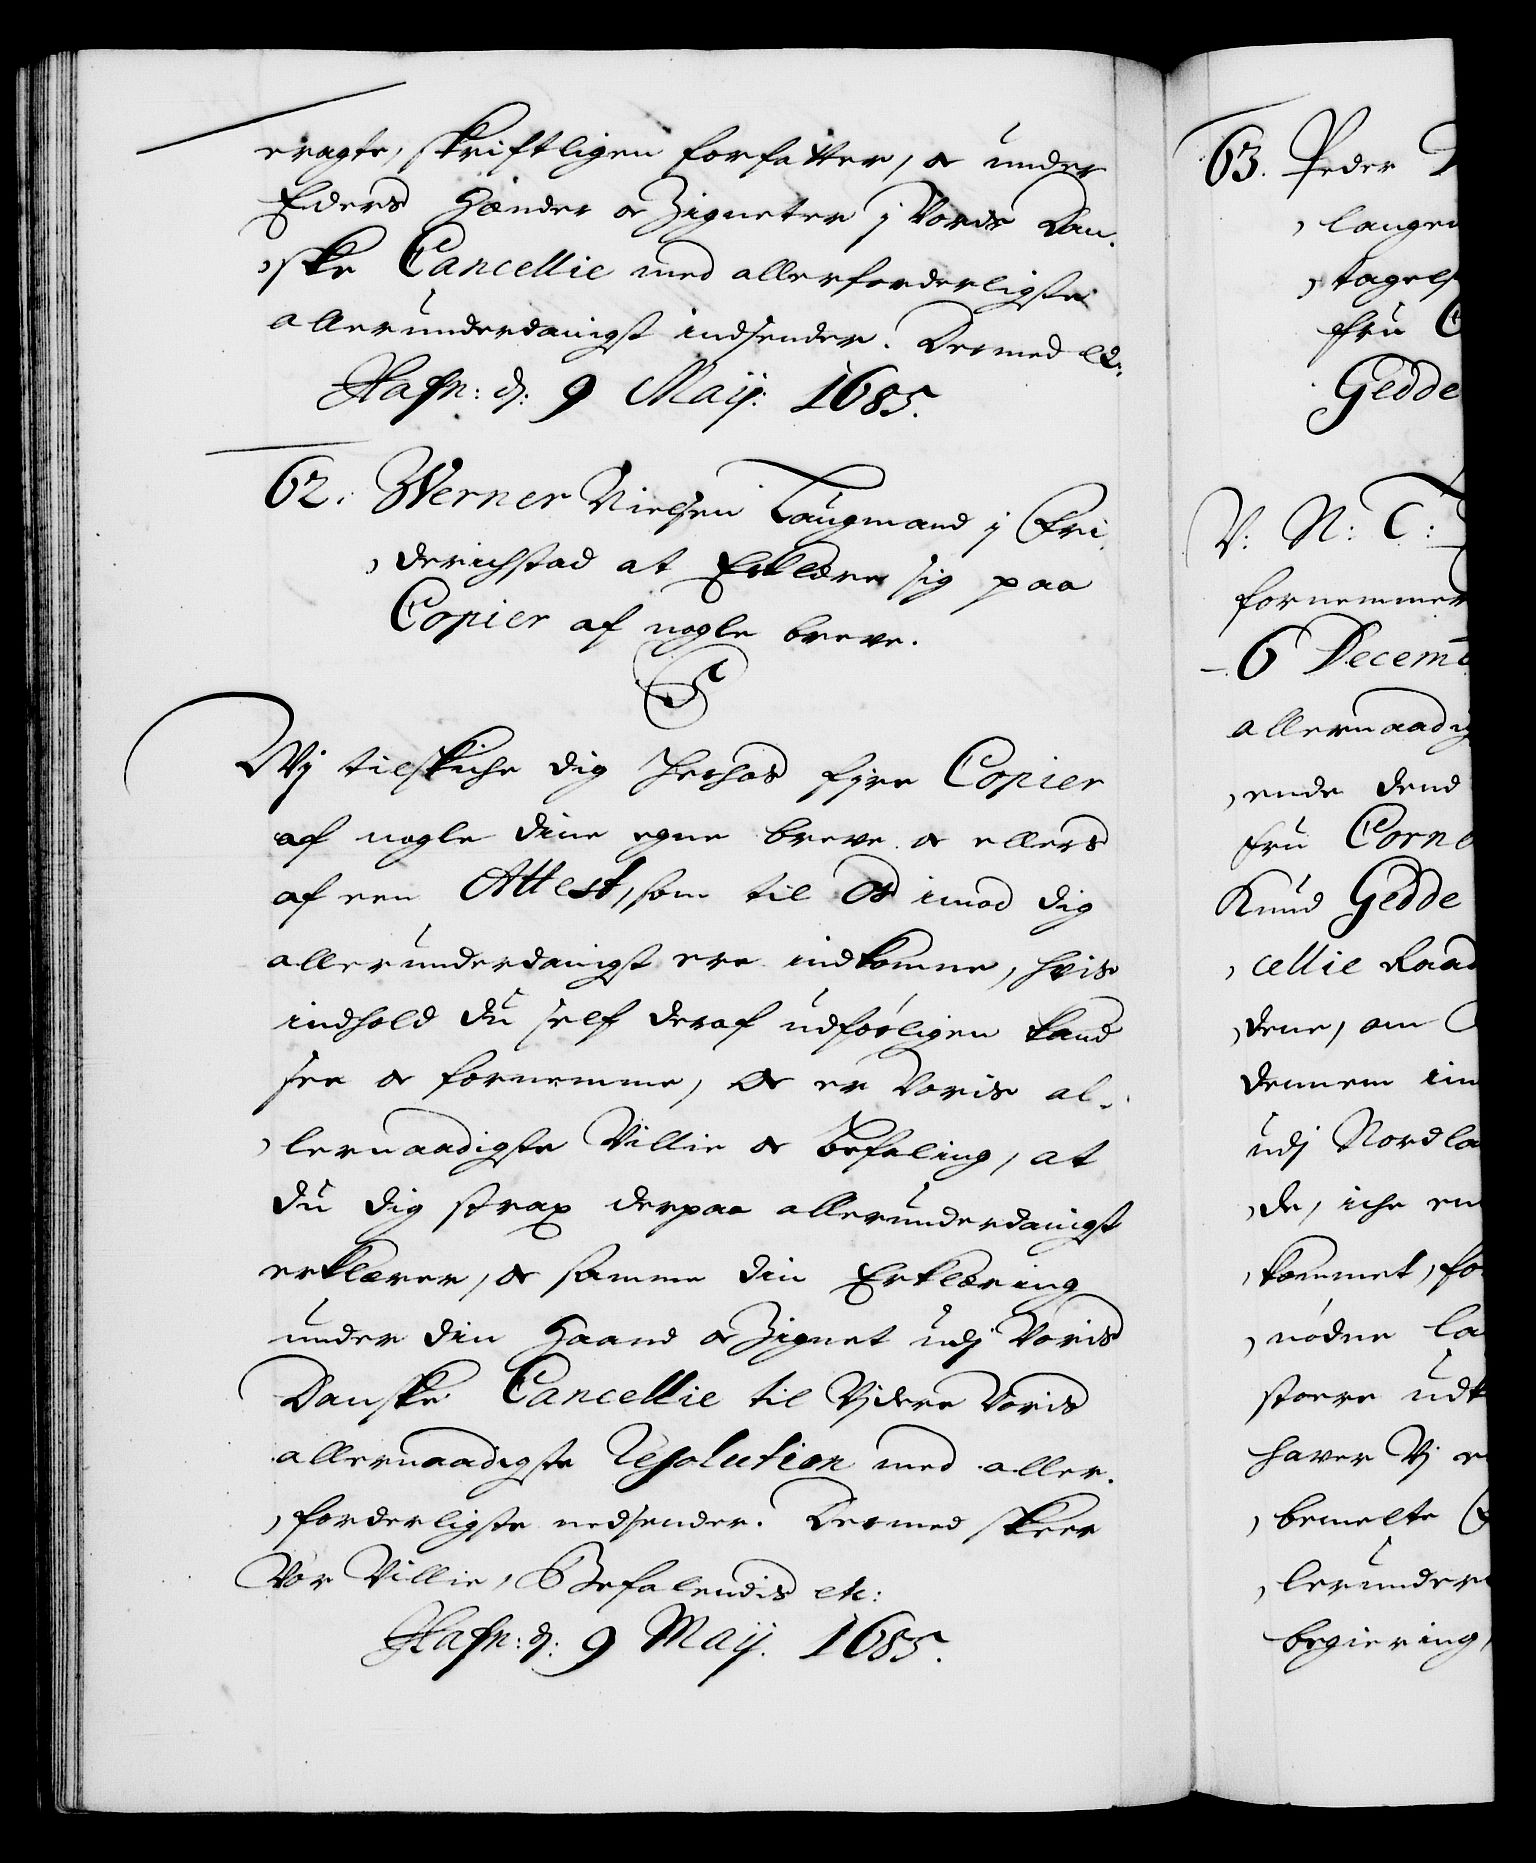 eragte, skriftligen forfatter, oc under
Eders Hænder oc Zigneter j Voris Dan-
,ske Cancellie med allerforderligste
allerunderdanigst indsender. Dermed etc:
Hafn: d: 9 Maij: 1685.
62. Werner Nielsen Laugmand j Fri-
,derichstad at Erklære sig paa
Copier af nogle breve.
S
Wj tilskiche dig herhos fire Copier
af nogle dine egne breve oc ellers
af een Attest, som til Os imod dig
allerunderdanigst ere indkomne, hvis
indhold du self deraf udførligen kand
see oc fornemme, Oc er Voris al-
,lernaadigste Villie oc befaling, at
du dig strax derpaa allerunderdanigst
erklærer, oc samme din Erklæring
under din Haand oc Zignet udj Voris
Danske Cancellie til Vjdere Voris
allernaadigste Resolution med aller-
,forderligste nedsender. Dermed skeer
Vor Villie, Befalendis etc:
Hafn: d: 9 Maij. 1685.
63. Peder
,langen
,tagels
Fru C
Gedde
V: N: T:
fornemmer
6 Decemb
allernaadig
,ende dend
Fru Corne
Knud Gedde
,cellie Raad
,dene, om
dennem im
udj Nordla
,de, iche en
,kommet, fo
,nødne la
støre udt
haver Vj
,bemelte
,lerunder
begiering,